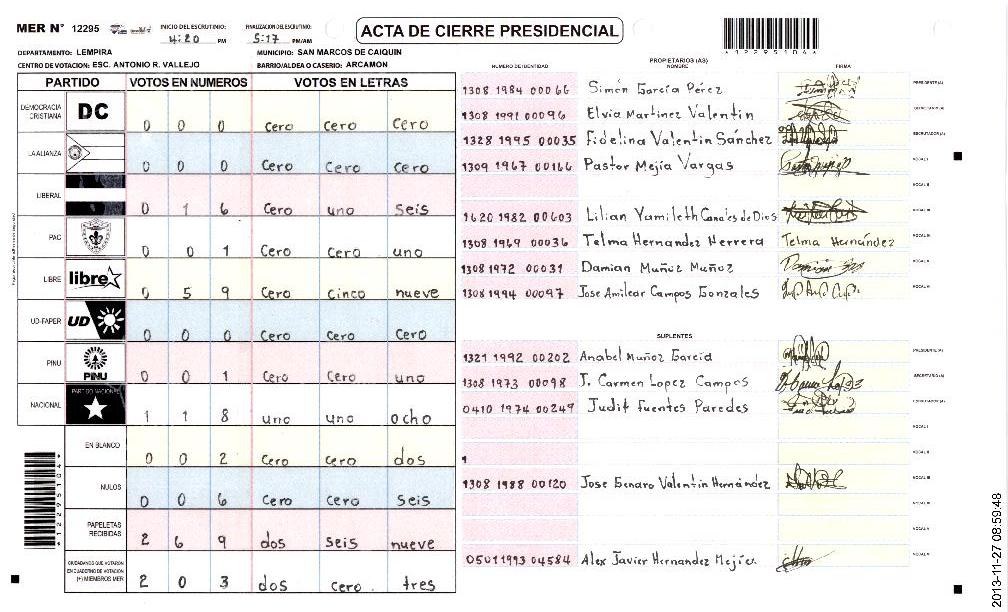 MER N° 12295
INICIO DEL ESCRUTINIO:
4:20 PM
FINALIZACION DEL ESCRUTINIO:
5:17 PM/AM
ACTA DE CIERRE PRESIDENCIAL
DEPARTAMENTO: LEMPIRA
MUNICIPIO: SAN MARCOS DE CAIQUIN
CENTRO DE VOTACION: ESC. ANTONIO R. VALLEJO
BARRIO/ALDEA O CASERIO: ARCAMON
PARTIDO VOTOS EN NUMEROS VOTOS EN LETRAS
DEMOCRACIA CRISTIANA DC 0 0 0 Cero Cero Cero
LA ALIANZA 0 0 0 Cero Cero Cero
LIBERAL 0 1 6 Cero uno seis
PAC 0 0 1 Cero Cero uno
LIBRE libre 0 5 9 Cero cinco nueve
UD-FAPER UD 0 0 0 Cero Cero Cero
PINU PINU 0 0 1 Cero Cero uno
NACIONAL PARTIDO NACIONAL 1 1 8 uno uno ocho
EN BLANCO 0 0 2 Cero Cero dos
NULOS 0 0 6 Cero Cero seis
PAPELETAS RECIBIDAS 2 6 9 dos seis nueve
CIUDADANOS QUE VOTARON EN CUADERNO DE VOTACION (+) MIEMBROS MER 2 0 3 dos cero tres
PROPIETARIOS (AS)
NUMERO DE IDENTIDAD NOMBRE FIRMA
1308 1984 00066 Simón García Pérez PRESIDENTE(A)
1308 1991 00096 Elvia Martinez Valentin SECRETARIO(A)
1328 1995 00035 Fidelina Valentin Sánchez ESCRUTADOR(A)
1309 1967 00166 Pastor Mejía Vargas VOCAL I
VOCAL II
1620 1982 00603 Lilian Yamileth Canales de Dios VOCAL III
1308 1969 00036 Telma Hernandez Herrera Telma Hernández
1308 1972 00031 Damian Muñoz Muñoz
1308 1994 00097 Jose Amilcar Campos Gonzales
SUPLENTES
1321 1992 00202 Anabel Muñoz Garcia PRESIDENTE(A)
1308 1973 00098 J. Carmen Lopez Campos SECRETARIO(A)
0410 1974 00249 Judit Fuentes Paredes ESCRUTADOR(A)
VOCAL I
VOCAL II
1308 1988 00120 Jose Genaro Valentin Hernández
0501 1993 04584 Alex Javier Hernandez Mejía
*12295104*
2013-11-27 08:59:48